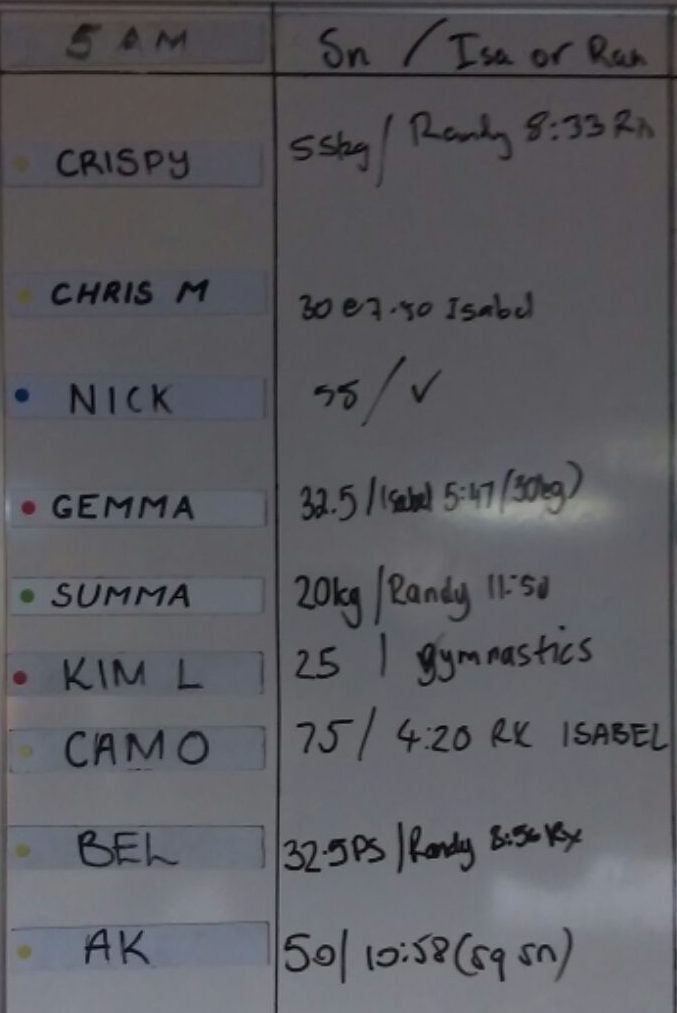 5 AM Sn / Isa or Ran
CRISPY 55kg / Randy 8:33 Rx
CHRIS M 30 @ 7.40 Isabel
NICK 55 / ✓
GEMMA 32.5 / Isabel 5:47 (30kg)
SUMMA 20kg / Randy 11:50
KIM L 25 | gymnastics
CAMO 75 / 4:20 RX ISABEL
BEL 32.5 PS / Randy 8:56 Rx
AK 50 / 10:58 (sq sn)